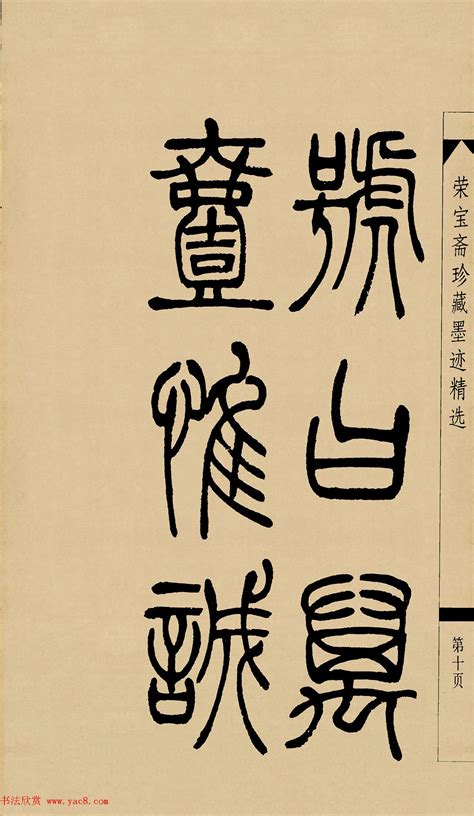 號曰萬
惟誠
荣宝斋珍藏墨迹精选
第十页
书法欣赏 www.yac8.com